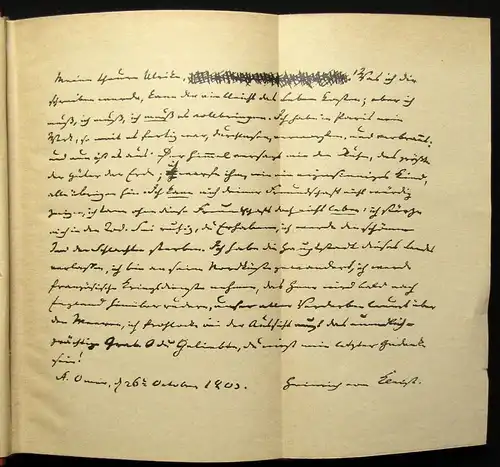 Meine theure Ulrike, Was ich dir
schreiben werde, kann dir vielleicht das Leben kosten; aber ich
muß, ich muß, ich muß es vollbringen. Ich habe in Paris mein
Werk, so weit es fertig war, durchlesen, verworfen, und verbrannt:
und nun ist es aus. Der Himmel versagt mir den Ruhm, das größte
der Güter der Erde; ich werfe ihm, wie ein eigensinniges Kind,
alle übrigen hin. Ich kann mich deiner Freundschaft nicht würdig
zeigen, ich kann ohne diese Freundschaft doch nicht leben: ich stürze
mich in den Tod. Sei ruhig, du Erhabene, ich werde den schönen
Tod der Schlachten sterben. Ich habe die Hauptstadt dieses Landes
verlassen, ich bin an seine Nordküste gewandert, ich werde
französische Kriegsdienste nehmen, das Heer wird bald nach
England hinüber rudern, unser aller Verderben lauert über
den Meeren, ich frohlocke bei der Aussicht auf das unendlich-
prächtige Grab. O du Geliebte, du wirst mein letzter Gedanke
sein!
St. Omer, d 26t October 1803. Heinrich von Kleist.